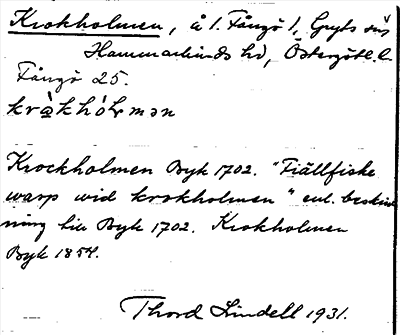 Krokholmen, å 1. Fångö 1, Gryts sn
Hammarkinds hd, Östergötl. l.
Fångö 25.
kråkhól̥mən
Krockholmen Byk 1702. "Fiällfiske
warp wid krokholmen" enl. beskriv
ning till Byk 1702. Krokholmen
Byk 1854.
Thord Lindell 1931.